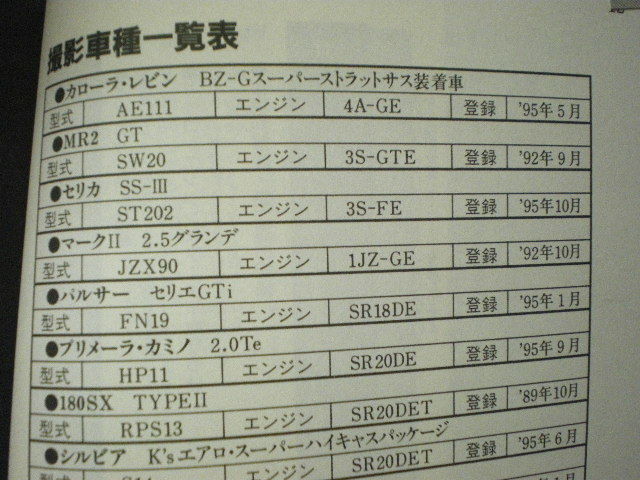 撮影車種一覧表
●カローラ・レビン BZ-Gスーパーストラットサス装着車
型式 AE111 エンジン 4A-GE 登録 '95年5月
●MR2 GT
型式 SW20 エンジン 3S-GTE 登録 '92年9月
●セリカ SS-III
型式 ST202 エンジン 3S-FE 登録 '95年10月
●マークII 2.5グランデ
型式 JZX90 エンジン 1JZ-GE 登録 '92年10月
●パルサー セリエGTi
型式 FN19 エンジン SR18DE 登録 '95年1月
●プリメーラ・カミノ 2.0Te
型式 HP11 エンジン SR20DE 登録 '95年9月
●180SX TYPEII
型式 RPS13 エンジン SR20DET 登録 '89年10月
●シルビア K'sエアロ・スーパーハイキャスパッケージ
エンジン SR20DET 登録 '95年6月